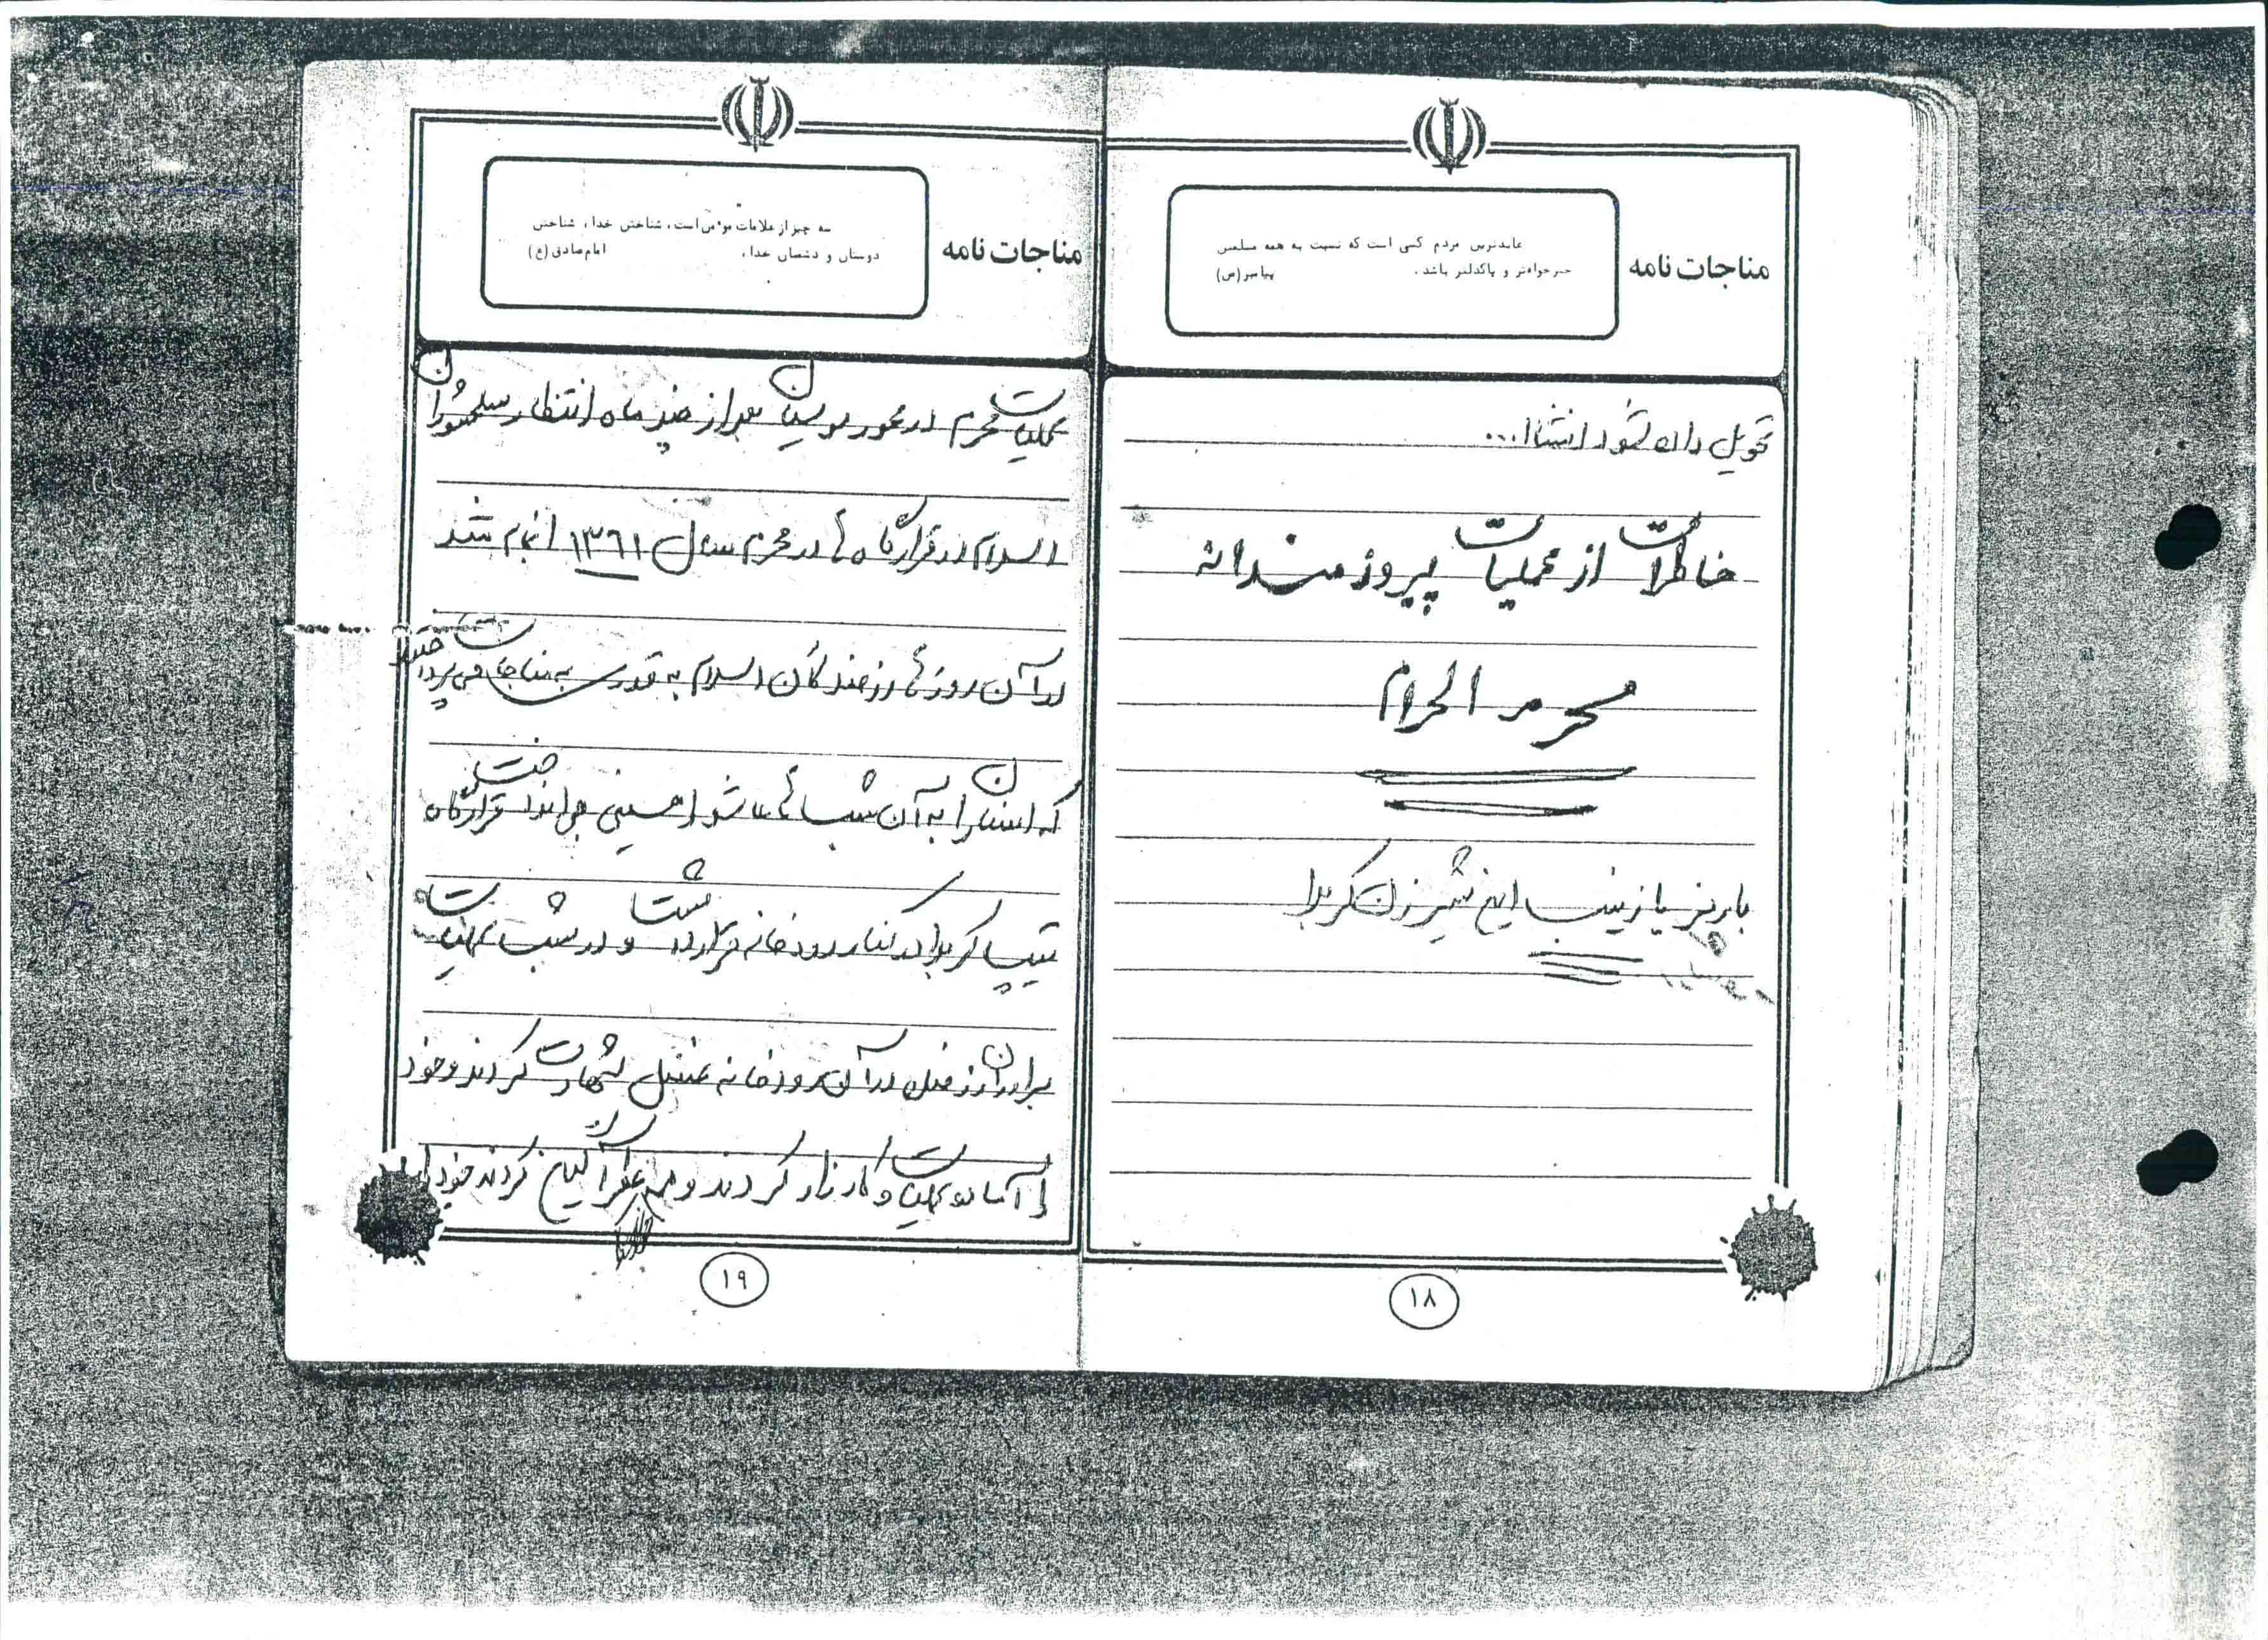 مناجات نامه
عابدترین مردم کسی است که نسبت به همه مسلمین
خیرخواه‌تر و پاکدلتر باشد. پیامبر (ص)
تحویل داده شود انشاا...
خاطرات از عملیات پیروزمندانه
محرم الحرام
با رمز یا زینب این شیرزن کربلا
۱۸
مناجات نامه
سه چیز از علامات مؤمن است، شناختن خدا، شناختن
دوستان و دشمنان خدا. امام صادق (ع)
عملیات محرم در محور موسیان بعد از چند ماه انتظار سلحشوران
اسلام در قرارگاه ها در محرم سال ۱۳۶۱ انجام شد
در آن روزها رزمندگان اسلام به قدری به مناجات می پرداختند
که انسان را به آن شب های عاشورا حسینی می انداخت قرارگاه
تیپ کربلا در کنار رودخانه قرار داشت و در شب عملیات
برادران رزمنده در آن رودخانه غسل شهادت کردند و خود
را آماده عملیات و کارزار کردند و همه کردند خود را
۱۹